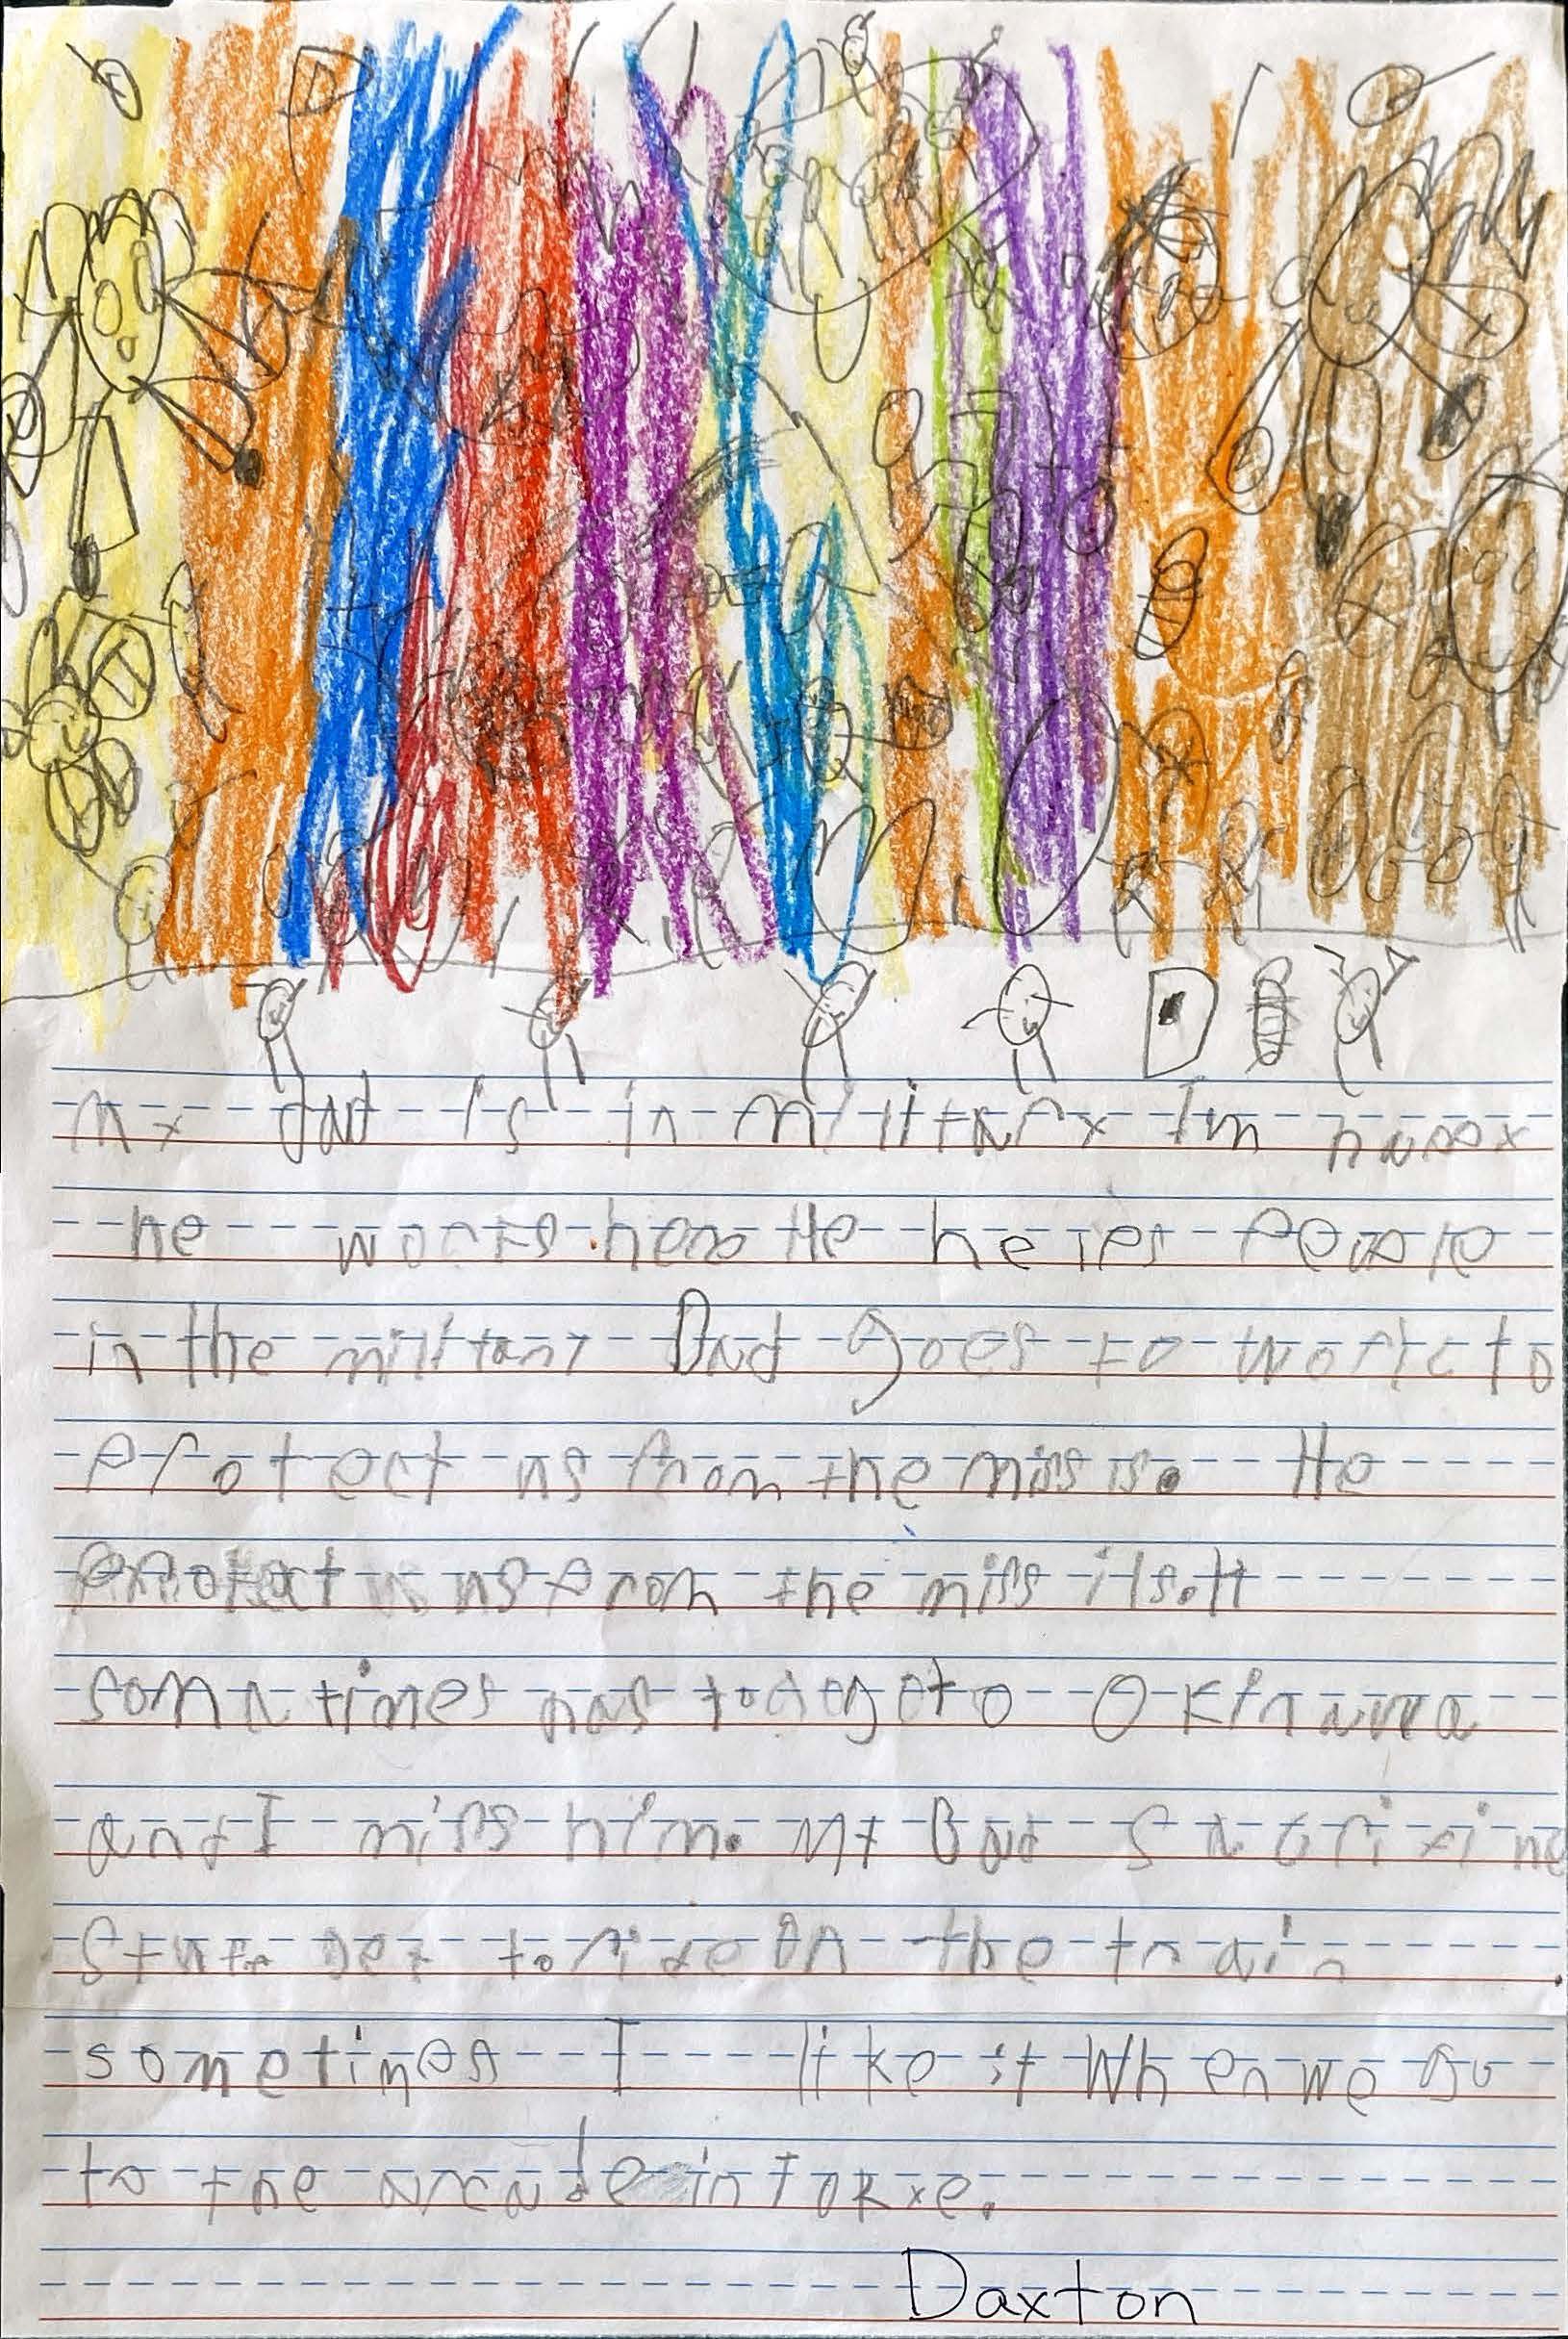 my dad is in military Im happy
he works here He helps People
in the military Dad goes to work to
protect us from the missis. He
protect us from the miss ils.It
somatimes has to go to Okinawa
and I miss him. My Dad
to ride on the train.
sometimes I like it When we go
to the arcade in Tokye.
Daxton